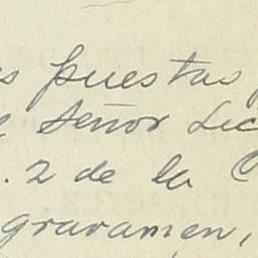 puestas
señor Lic
. 2 de la
gravamen,